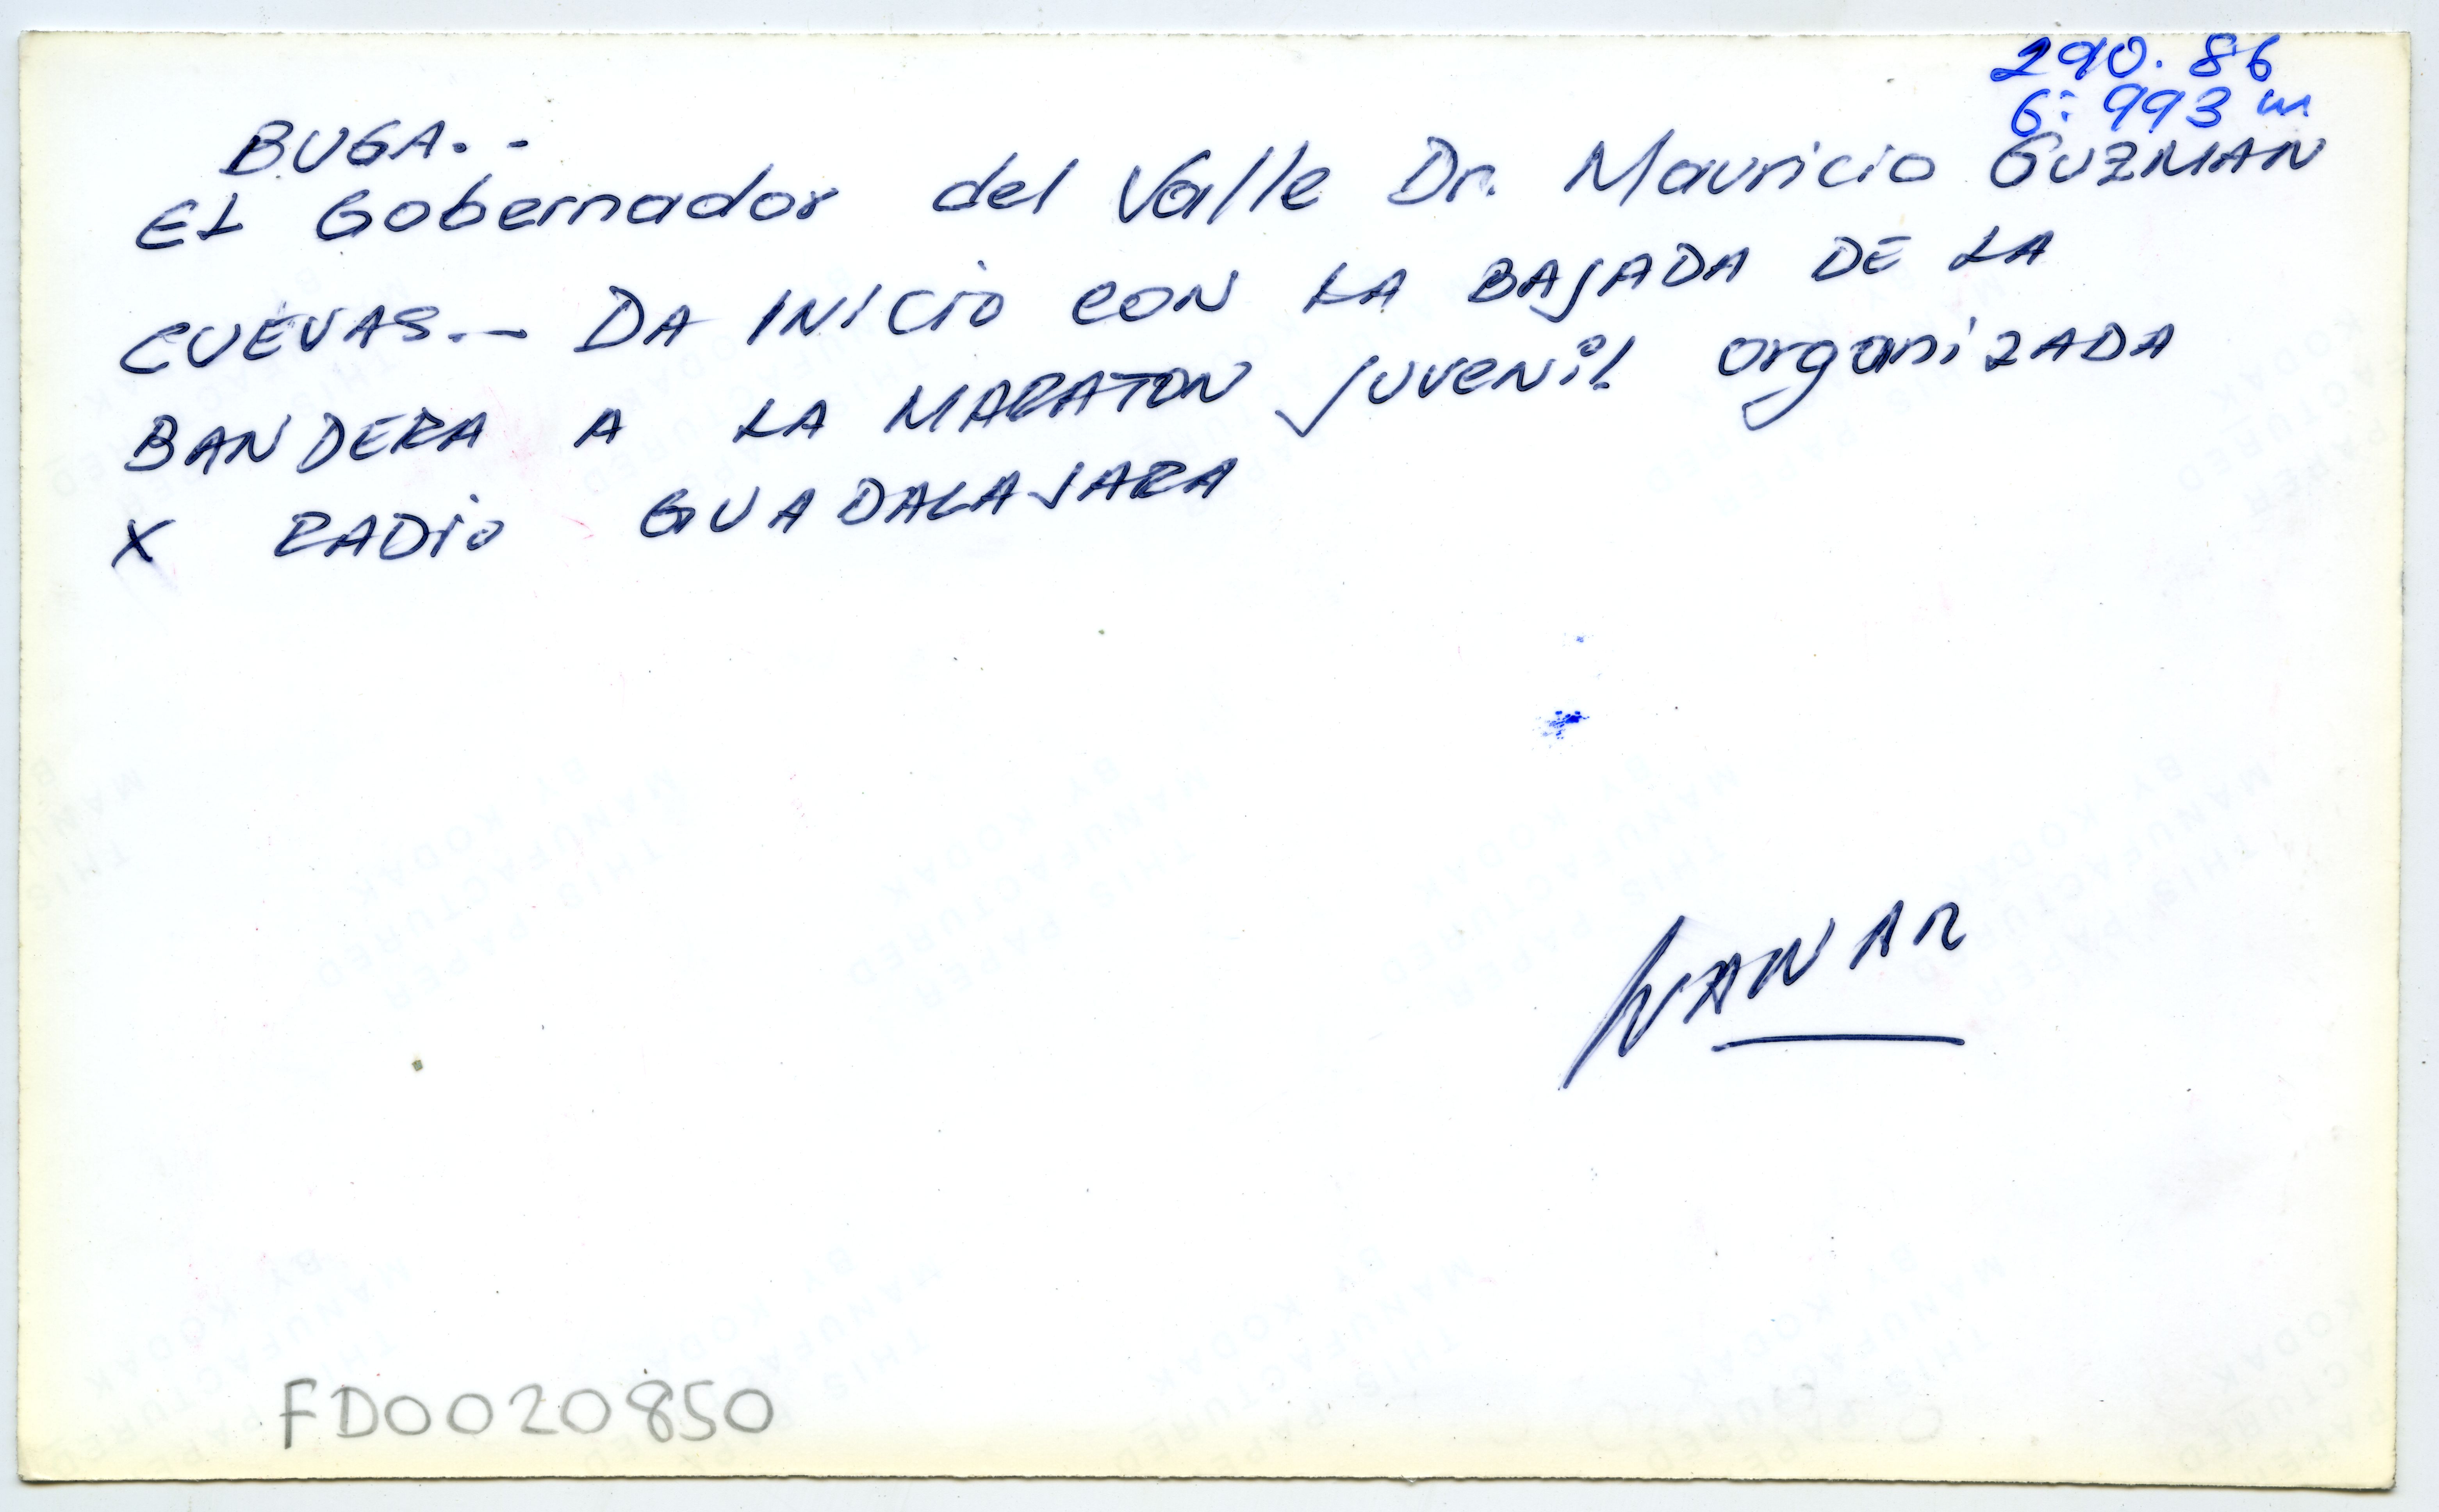 290. 86
6: 993 m
BUGA. -
EL Gobernador del Valle Dr. Mauricio GUZMAN
CUEVAS._ DA INICIO CON LA BAJADA DE LA
BANDERA A LA MARATON juvenil organizADA
X RADIO GUADALAJARA
FD0020850